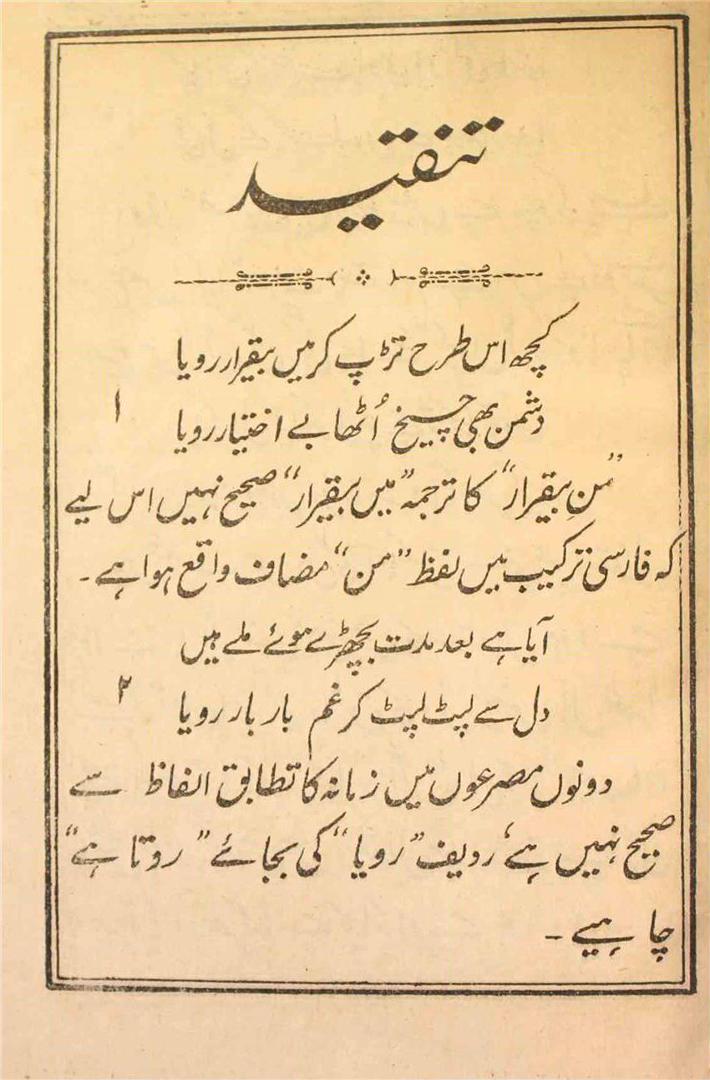 تنقید
کچھ اس طرح تڑپ کر میں بیقرار رویا
دشمن بھی چیخ اُٹھا بے اختیار رویا
۱
”منِ بیقرار“ کا ترجمہ ”میں بیقرار“ صحیح نہیں اس لیے
کہ فارسی ترکیب میں لفظ ”من“ مضاف واقع ہوا ہے۔
آیا ہے بعد مدت بچھڑے ہوئے ملے ہیں
دل سے لپٹ لپٹ کر غم بار بار رویا
۲
دونوں مصرعوں میں زمانہ کا تطابق الفاظ سے
صحیح نہیں ہے، ردیف ”رویا“ کی بجائے ”روتا ہے“
چاہیے۔